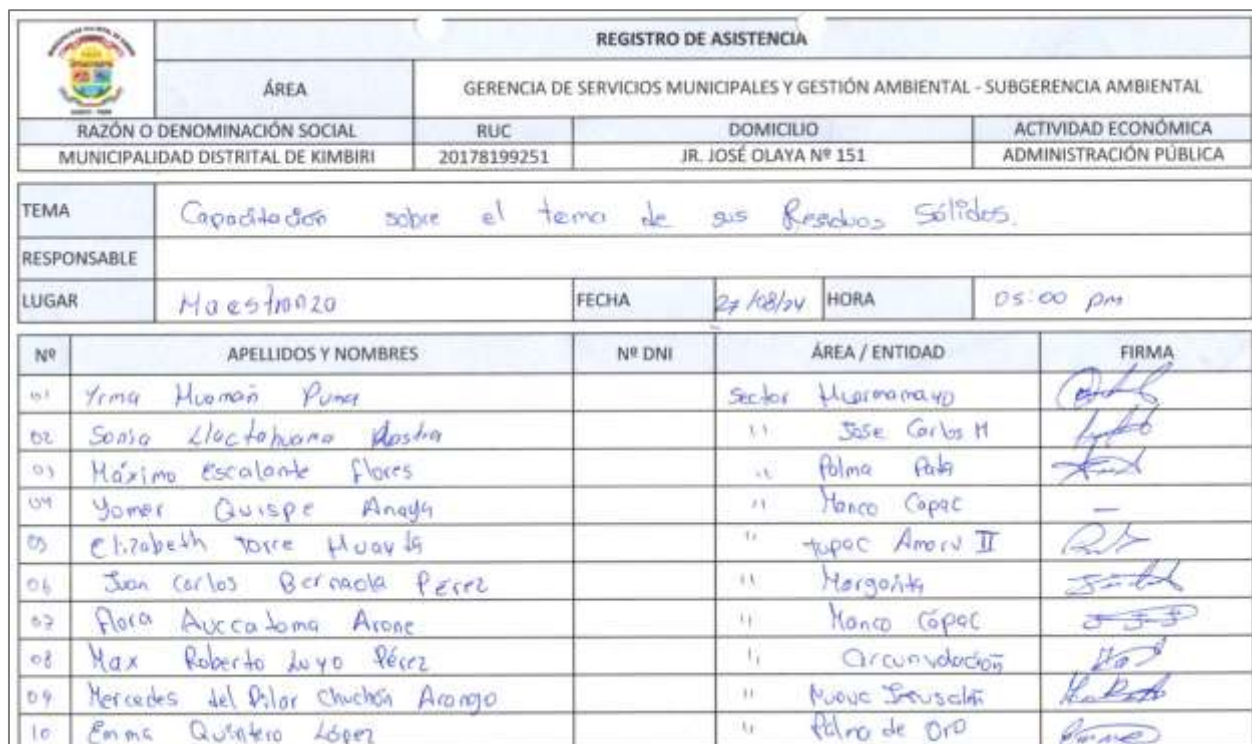 REGISTRO DE ASISTENCIA
ÁREA GERENCIA DE SERVICIOS MUNICIPALES Y GESTIÓN AMBIENTAL - SUBGERENCIA AMBIENTAL
RAZÓN O DENOMINACIÓN SOCIAL RUC DOMICILIO ACTIVIDAD ECONÓMICA
MUNICIPALIDAD DISTRITAL DE KIMBIRI 20178199251 JR. JOSÉ OLAYA Nº 151 ADMINISTRACIÓN PÚBLICA
TEMA Capacitación sobre el tema de sus Residuos Sólidos.
RESPONSABLE
LUGAR Maestranza FECHA 27/08/24 HORA 05:00 pm
Nº APELLIDOS Y NOMBRES Nº DNI ÁREA / ENTIDAD FIRMA
01 Yrma Huamañ Puma Sector Huarmamayo
02 Sonia Llactahuama " Jose Carlos M
03 Máximo Escalante flores " Palma Pata
04 Yomer Quispe Anaya " Manco Capac —
05 Elizabeth Torre " tupac Amaru II
06 Juan Carlos Bernaola Pérez " Margarita
07 Flora Auccatoma Arone " Manco Cápac
08 Max Roberto Luyo Pérez " Circunvalación
09 Mercedes del Pilar Chuchón Arango " Nueva Jerusalén
10 Emma Quintero López " Palma de Oro